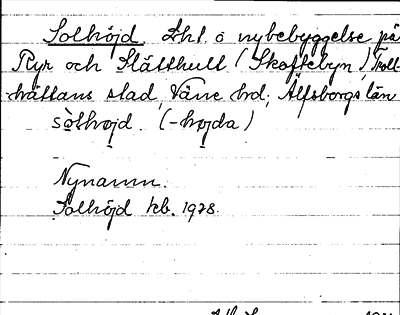 Solhöjd. Lht o nybebyggelse på
Ryr och Slätthult (Skoftebyn), Troll-
hättans stad, Väne hd, Älfsborgs län
sòlhøjd. (-højda)
Nynamn.
Solhöjd kb. 1978.